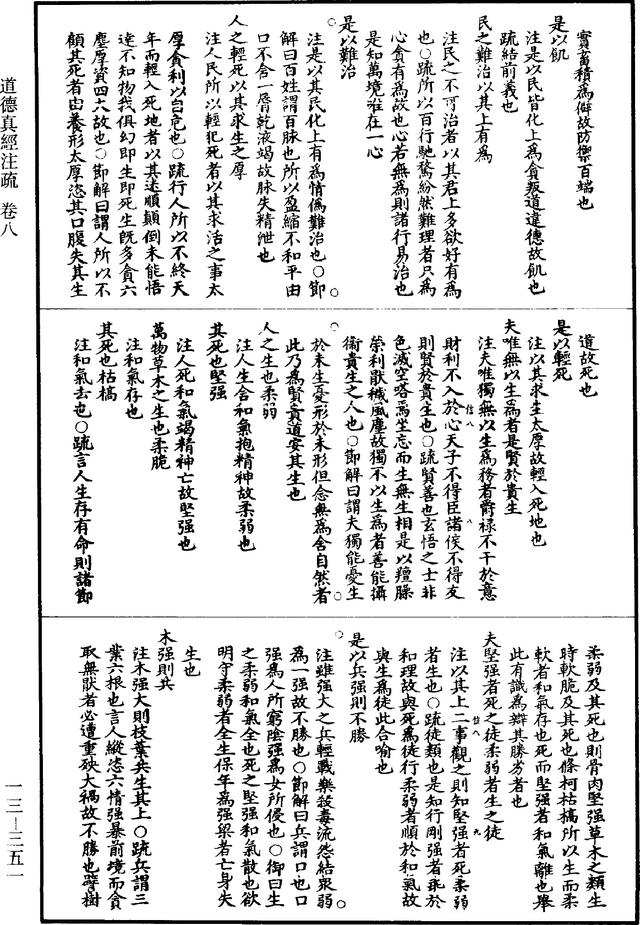 實畜積為僻故防禦百端也
是以飢
注是以民皆化上為貪叛道違德故飢也
疏結前義也
民之難治以其上有為
注民之不可治者以其君上多欲好有為
也○疏所以百行馳騖紛然難理者只為
心貪有為故也心若無為則諸行易治也
是知萬境唯在一心
是以難治
注是以其民化上有為情偽難治也○節
解曰百姓謂百脉也所以盈縮不和平由
口不含一唇乾液竭故脉失精泄也
人之輕死以其求生之厚
注人民所以輕犯死者以其求活之事太
厚貪利以自危也○疏行人所以不終天
年而輕入死地者以其迷順顛倒未能悟
達不知物我俱幻即生即死生既多貪六
塵厚資四大故也○節解曰謂人所以不
顧其死者由養形太厚恣其口腹失其生
道故死也
是以輕死
注以其求生太厚故輕入死地也
夫唯無以生為者是賢於貴生
注夫唯獨無以生為務者爵祿不干於意
財利不入於心天子不得臣諸侯不得友
則賢於貴生也○疏賢善也玄悟之士非
色滅空咯為坐忘而生無生相是以羶臊
榮利猒穢風塵故獨不以生為者善能攝
衞貴生之人也○節解曰謂夫獨能憂生
於未生憂形於未形但念無為舍自然者
此乃為賢貴道安其生也
人之生也柔弱
注人生含和氣抱精神故柔弱也
其死也堅强
注人死和氣竭精神亡故堅强也
萬物草木之生也柔脆
注和氣存也
其死也枯槁
注和氣去也○疏言人生存有命則諸節
柔弱及其死也則骨肉堅强草木之類生
時軟脆及其死也條柯枯槁所以生而柔
軟者和氣存也死而堅强者和氣離也舉
此有識為辯其勝劣者也
夫堅强者死之徒柔弱者生之徒
注以其上二事觀之則知堅强者死柔弱
者生也○疏徒類也是知行剛强者乖於
和理故與死為徒行柔弱者順於和氣故
與生為徒此合喻也
是以兵强則不勝
注雖强大之兵輕戰樂殺毒流怨結衆弱
為一强故不勝也○節解曰兵謂口也口
强為人所窮陰强為女所侵也○御曰生
之柔弱和氣全也死之堅强和氣散也欲
明守柔弱者全生保年為强梁者亡身失
生也
木强則共
注本强大則枝葉共生其上○疏兵謂三
業六根也言人縱恣六情强暴前境而貪
取無猒者必遭重殃大禍故不勝也譬樹
道德真經注疏 卷八
一三—三五一